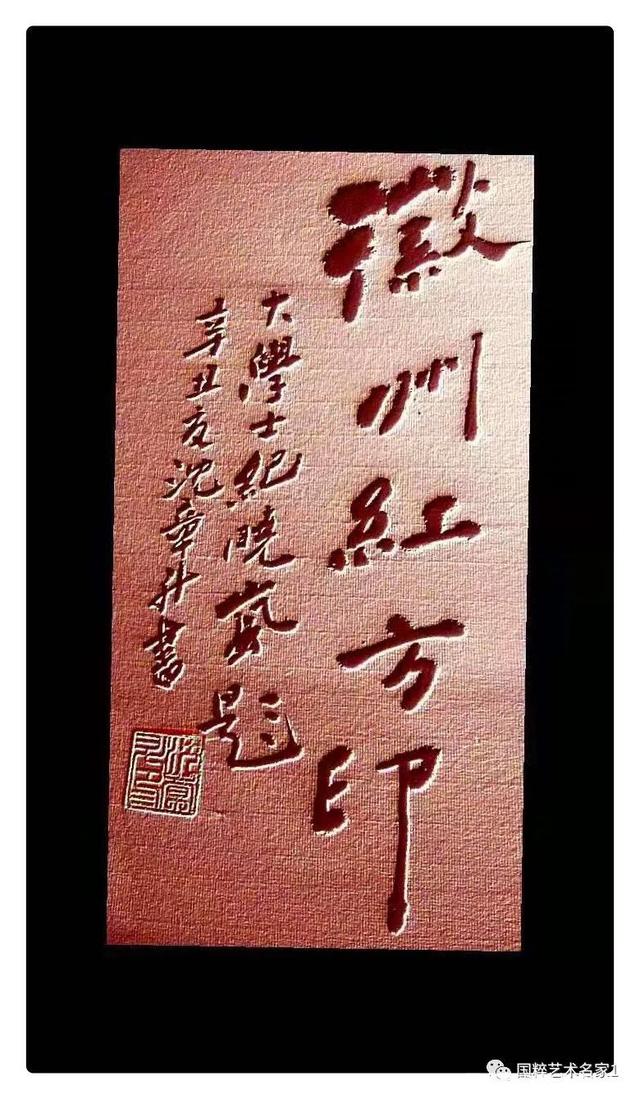 徽州紅方印
大學士紀曉嵐題
辛丑友沈章升書
国粹艺术名家1